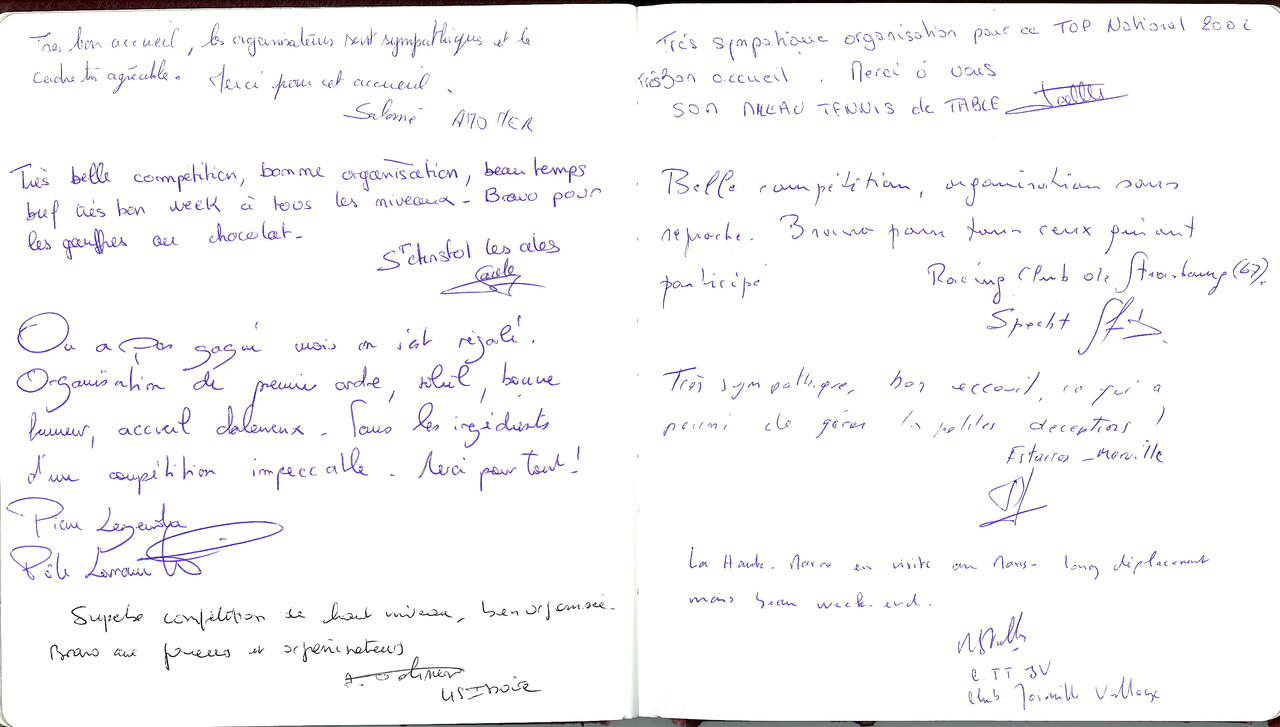 Très bon accueil, les organisateurs sont sympathiques et le
cadre très agréable. Merci pour cet accueil.
Salomé
Très belle compétition, bonne organisation, beau temps
bref très bon week à tous les niveaux - Bravo pour
les gauffres au chocolat -
St les
On a pas gagné mais on s'est régalé.
Organisation de premier ordre, soleil, bonne
humeur, accueil chaleureux. Tous les ingrédients
d'une compétition impeccable. Merci pour tout!
Pôle Lorrain
Superbe compétition de haut niveau, bien organisée.
Bravo aux et organisateurs
Très sympatique organisation pour ce TOP National
Très Bon accueil. Merci à vous
TENNIS de TABLE
Belle compétition, organisation sans
reproche. Bravo pour tous ceux qui ont
participé
Racing Club de Strasbourg (67).
Specht
Très sympathique, bon accceuil, ce qui a
permi de gérer les petites deceptions!
Estaires - Merville
La Haute-Marne en visite au Mans - long déplacement
mais beau week-end.
C TT JV
Club Joinville Vallage